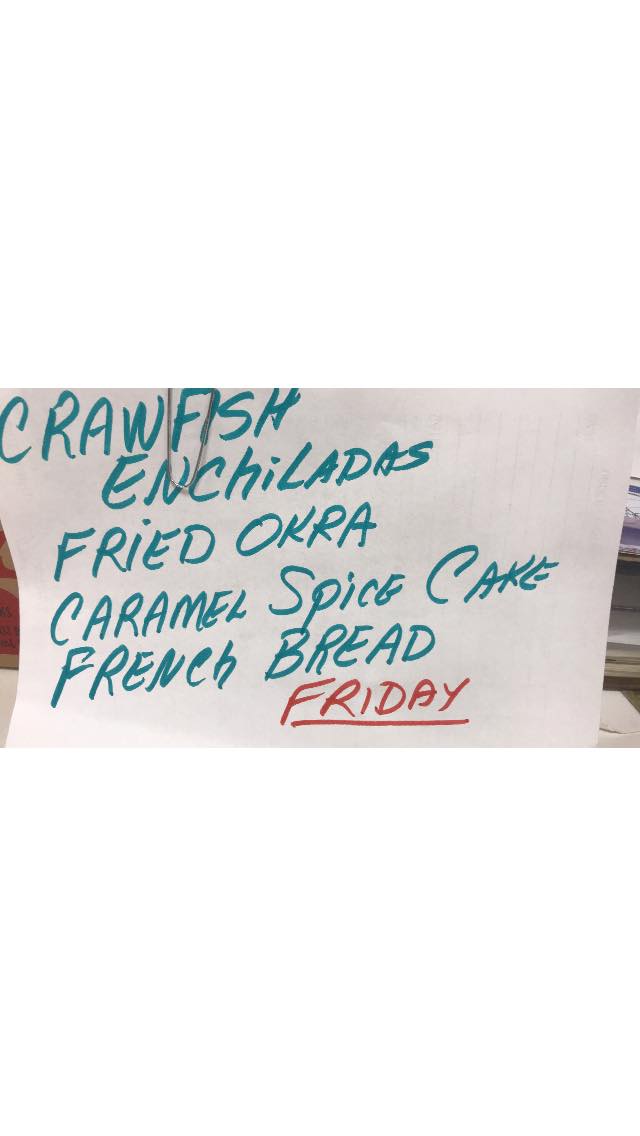 CRAWFISH
ENChiLADAS
FRiED OKRA
CARAMEL SpicE CAKE
FRENCh BREAD
FRIDAY